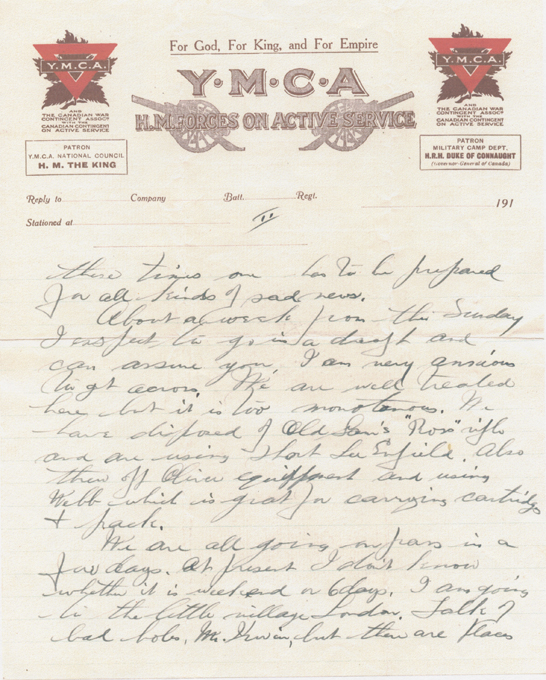 For God, For King, and For Empire
Y·M·C·A
H.M. FORCES ON ACTIVE SERVICE
Y.M.C.A.
AND
THE CANADIAN WAR
CONTINGENT ASSOCN
WITH THE
CANADIAN CONTINGENT
ON ACTIVE SERVICE
PATRON
Y.M.C.A. NATIONAL COUNCIL
H. M. THE KING
Y.M.C.A.
AND
THE CANADIAN WAR
CONTINGENT ASSOCN
WITH THE
CANADIAN CONTINGENT
ON ACTIVE SERVICE
PATRON
MILITARY CAMP DEPT.
H.R.H. DUKE OF CONNAUGHT
(Governor-General of Canada)
Reply to Company Batt. Regt. 191
Stationed at
II
these times one has to be prepared
for all kinds of sad news.
About a week from this Sunday
I expect to go in a draft and
can assure you, I am very anxious
to get across. We are well treated
here but it is too monotonous. We
have disposed of Old Sam's "Ross" rifle
and are using Short Lee Enfield. Also
thrown off Oliver equipment and using
Webb which is great for carrying cartridges
+ pack.
We are all going on pass in a
few days. At present I don't know
whether it is weekend or 6 days. I am going
to the little village London. Talk of
bad holes, Mr. Irwin, but there are places